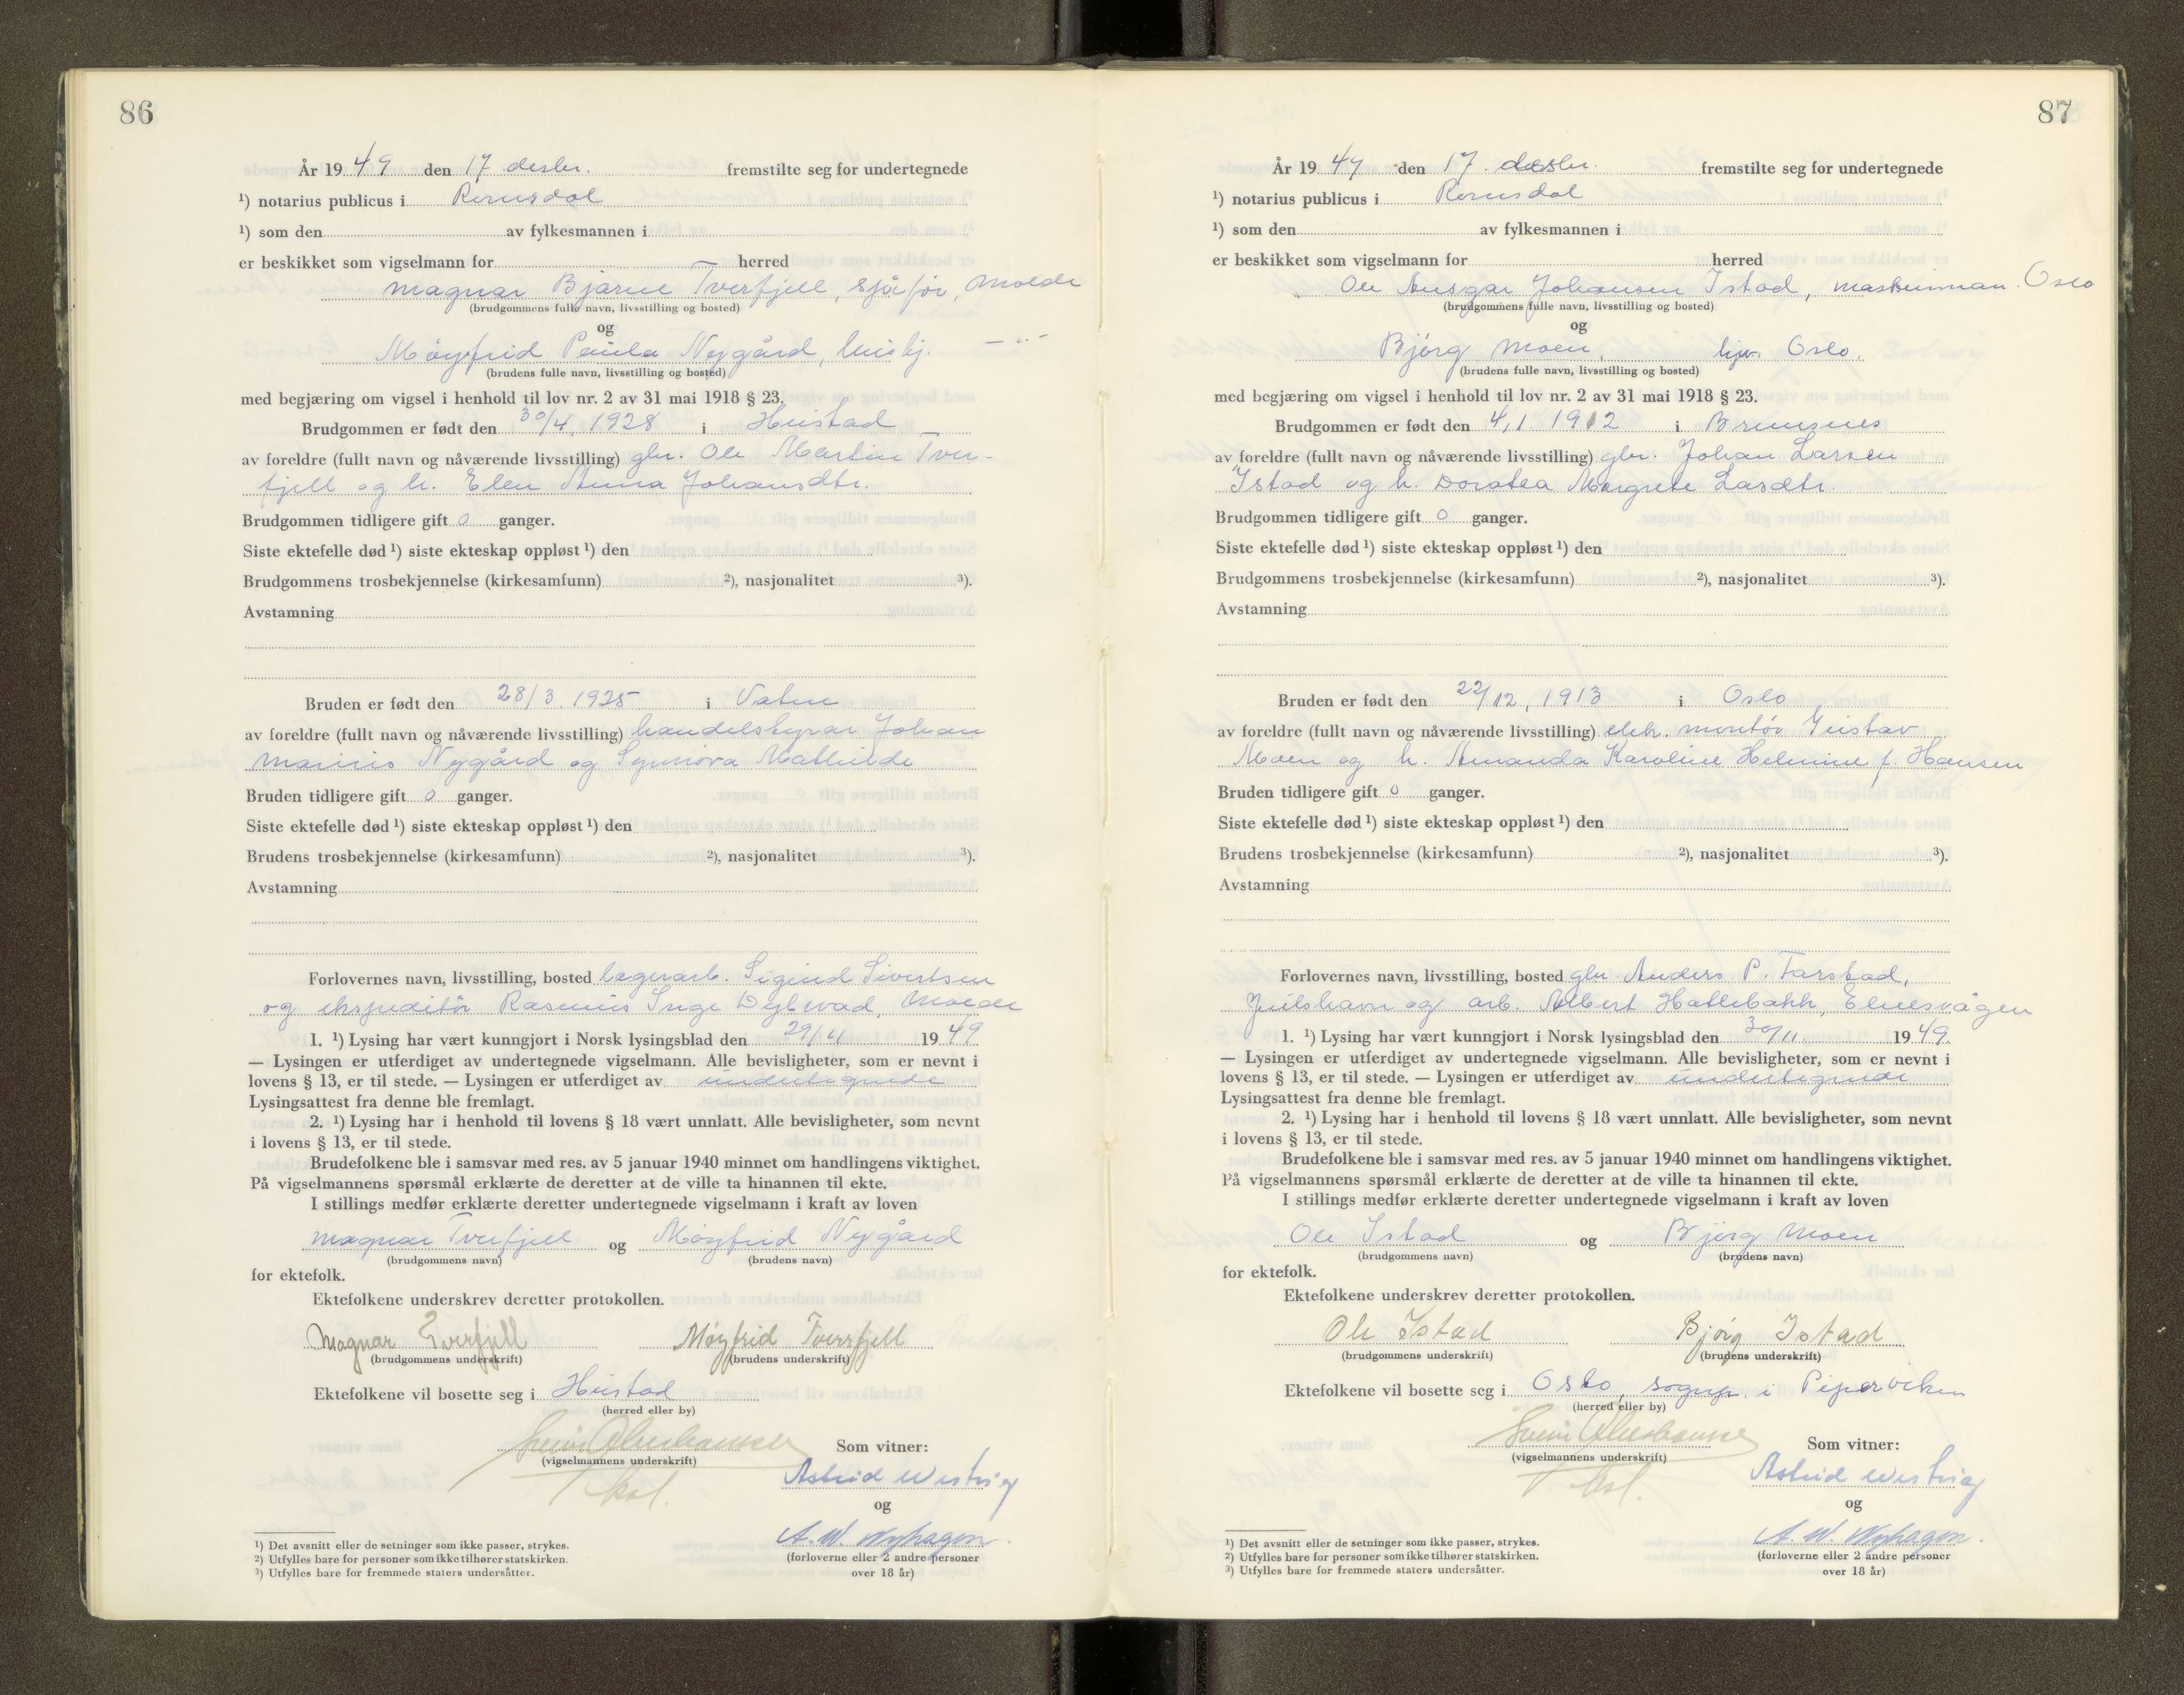 86
År 19 49 den 17 desbr. fremstilte seg for undertegnede
¹) notarius publicus i Romsdal
¹) som den av fylkesmannen i
er beskikket som vigselmann for herred
Magnar Bjarne Tverfjell, sjåfør, Molde
(brudgommens fulle navn, livsstilling og bosted)
og
Møyfrid Paula Nygård, hushj. — " —
(brudens fulle navn, livsstilling og bosted)
med begjæring om vigsel i henhold til lov nr. 2 av 31 mai 1918 § 23.
Brudgommen er født den 30/4, 1928 i Hustad
av foreldre (fullt navn og nåværende livsstilling) gbr. Ole Martin Tver-
fjell og h. Elen Anna Johansdtr.
Brudgommen tidligere gift 0 ganger.
Siste ektefelle død ¹) siste ekteskap oppløst ¹) den
Brudgommens trosbekjennelse (kirkesamfunn) ²), nasjonalitet ³).
Avstamning
Bruden er født den 28/3, 1925 i Vatne
av foreldre (fullt navn og nåværende livsstilling) handelsbyrar Johan
Marius Nygård og Synnøva Mathilde
Bruden tidligere gift 0 ganger.
Siste ektefelle død ¹) siste ekteskap oppløst ¹) den
Brudens trosbekjennelse (kirkesamfunn) ²), nasjonalitet ³).
Avstamning
Forlovernes navn, livsstilling, bosted lagerarb. Sigurd Sivertsen
og ekspeditør Rasmus Inge Dybvad, Molde
1. ¹) Lysing har vært kunngjort i Norsk lysingsblad den 29/11 19 49
— Lysingen er utferdiget av undertegnede vigselmann. Alle bevisligheter, som er nevnt i
lovens § 13, er til stede. — Lysingen er utferdiget av undertegnede
Lysingsattest fra denne ble fremlagt.
2. ¹) Lysing har i henhold til lovens § 18 vært unnlatt. Alle bevisligheter, som nevnt
i lovens § 13, er til stede.
Brudefolkene ble i samsvar med res. av 5 januar 1940 minnet om handlingens viktighet.
På vigselmannens spørsmål erklærte de deretter at de ville ta hinannen til ekte.
I stillings medfør erklærte deretter undertegnede vigselmann i kraft av loven
Magnar Tverfjell og Møyfrid Nygård
(brudgommens navn) (brudens navn)
for ektefolk.
Ektefolkene underskrev deretter protokollen.
Magnar Tverfjell Møyfrid Tverrfjell
(brudgommens underskrift) (brudens underskrift)
Ektefolkene vil bosette seg i Hustad
(herred eller by)
Som vitner:
(vigselmannens underskrift)
Astrid Westvig
og
A. W. Nyhagen.
(forloverne eller 2 andre personer
over 18 år)
¹) Det avsnitt eller de setninger som ikke passer, strykes.
²) Utfylles bare for personer som ikke tilhører statskirken.
³) Utfylles bare for fremmede staters undersåtter.
87
År 19 49 den 17. desbr. fremstilte seg for undertegnede
¹) notarius publicus i Romsdal
¹) som den av fylkesmannen i
er beskikket som vigselmann for herred
Ole Ansgar Johansen Istad, maskinman. Oslo
(brudgommens fulle navn, livsstilling og bosted)
og
Bjørg Moen, Oslo.
(brudens fulle navn, livsstilling og bosted)
med begjæring om vigsel i henhold til lov nr. 2 av 31 mai 1918 § 23.
Brudgommen er født den 4/1 1912 i Bremsnes
av foreldre (fullt navn og nåværende livsstilling) gbr. Johan Larsen
Istad og h. Dorotea Margrete Lasdtr.
Brudgommen tidligere gift 0 ganger.
Siste ektefelle død ¹) siste ekteskap oppløst ¹) den
Brudgommens trosbekjennelse (kirkesamfunn) ²), nasjonalitet ³).
Avstamning
Bruden er født den 22/12, 1913 i Oslo
av foreldre (fullt navn og nåværende livsstilling) elek. montør Gustav
Moen og h. Amanda Karoline Helmine f. Hansen
Bruden tidligere gift 0 ganger.
Siste ektefelle død ¹) siste ekteskap oppløst ¹) den
Brudens trosbekjennelse (kirkesamfunn) ²), nasjonalitet ³).
Avstamning
Forlovernes navn, livsstilling, bosted gbr. Anders P. Farstad,
Julshavn og arb. Albert Hattebakk, Elnesvågen
1. ¹) Lysing har vært kunngjort i Norsk lysingsblad den 30/11 19 49
— Lysingen er utferdiget av undertegnede vigselmann. Alle bevisligheter, som er nevnt i
lovens § 13, er til stede. — Lysingen er utferdiget av undertegnede
Lysingsattest fra denne ble fremlagt.
2. ¹) Lysing har i henhold til lovens § 18 vært unnlatt. Alle bevisligheter, som nevnt
i lovens § 13, er til stede.
Brudefolkene ble i samsvar med res. av 5 januar 1940 minnet om handlingens viktighet.
På vigselmannens spørsmål erklærte de deretter at de ville ta hinannen til ekte.
I stillings medfør erklærte deretter undertegnede vigselmann i kraft av loven
Ole Istad og Bjørg Moen
(brudgommens navn) (brudens navn)
for ektefolk.
Ektefolkene underskrev deretter protokollen.
Ole Istad Bjørg Istad
(brudgommens underskrift) (brudens underskrift)
Ektefolkene vil bosette seg i Oslo, sognpr. i Piperviken
(herred eller by)
Som vitner:
(vigselmannens underskrift)
Astrid Westvig
og
A. W. Nyhagen.
(forloverne eller 2 andre personer
over 18 år)
¹) Det avsnitt eller de setninger som ikke passer, strykes.
²) Utfylles bare for personer som ikke tilhører statskirken.
³) Utfylles bare for fremmede staters undersåtter.